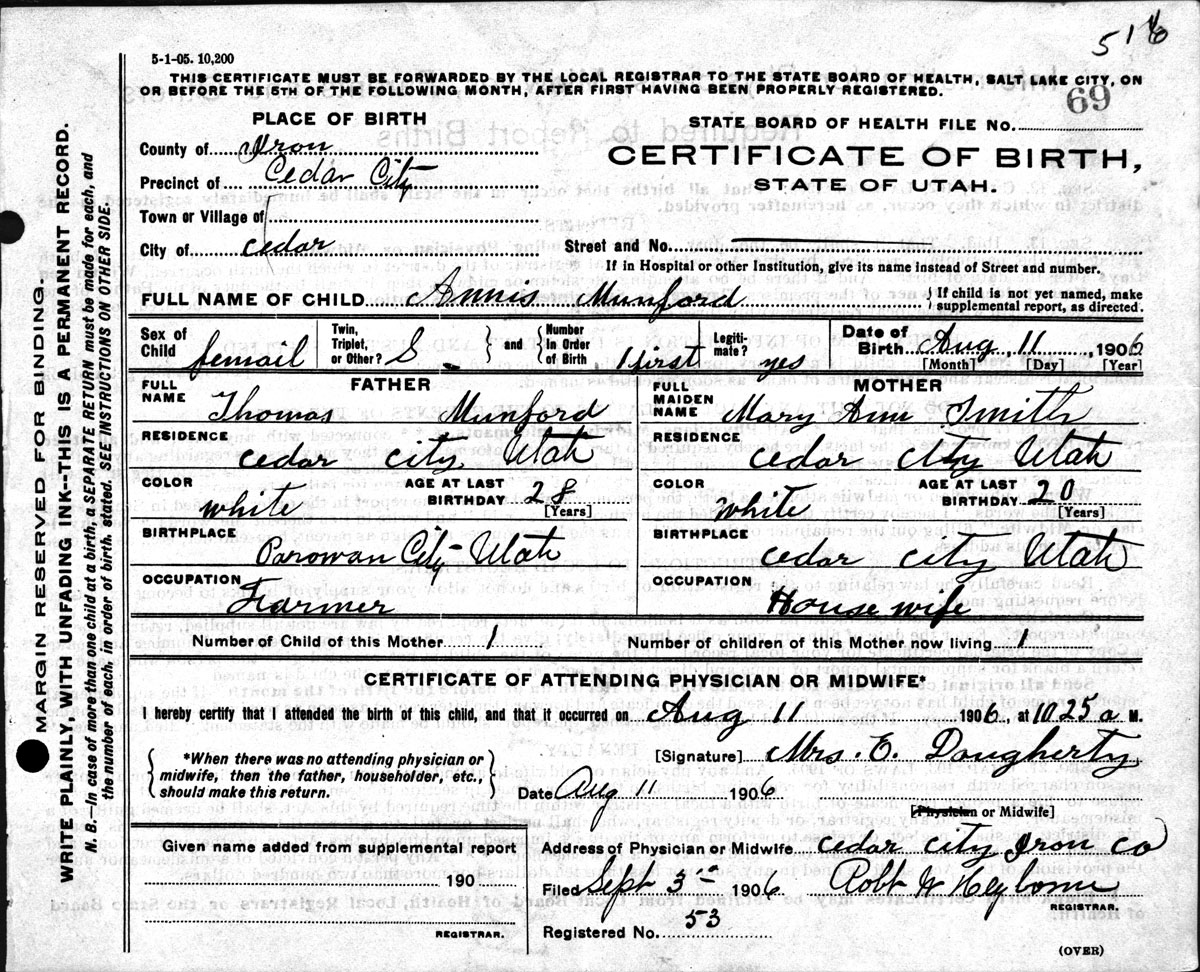 516
5-1-05. 10,200
THIS CERTIFICATE MUST BE FORWARDED BY THE LOCAL REGISTRAR TO THE STATE BOARD OF HEALTH, SALT LAKE CITY, ON
OR BEFORE THE 5TH OF THE FOLLOWING MONTH, AFTER FIRST HAVING BEEN PROPERLY REGISTERED.
69
PLACE OF BIRTH
STATE BOARD OF HEALTH FILE No.
County of Iron
CERTIFICATE OF BIRTH,
Precinct of Cedar City
STATE OF UTAH.
Town or Village of
City of cedar
Street and No.
If in Hospital or other Institution, give its name instead of Street and number.
FULL NAME OF CHILD Annis Munford
If child is not yet named, make
supplemental report, as directed.
Sex of Child femail
Twin, Triplet, or Other? S.
and
Number in Order of Birth 1 first
Legiti-mate? yes
Date of Birth Aug 11, 1906
[Month] [Day] [Year]
FATHER
FULL NAME Thomas Munford
RESIDENCE cedar city Utah
COLOR white
AGE AT LAST BIRTHDAY 28
[Years]
BIRTHPLACE Parowan City Utah
OCCUPATION Farmer
MOTHER
FULL MAIDEN NAME Mary Ann Smith
RESIDENCE cedar city Utah
COLOR white
AGE AT LAST BIRTHDAY 20
[Years]
BIRTHPLACE cedar city Utah
OCCUPATION House wife
Number of Child of this Mother 1
Number of children of this Mother now living 1
CERTIFICATE OF ATTENDING PHYSICIAN OR MIDWIFE*
I hereby certify that I attended the birth of this child, and that it occurred on Aug 11 1906, at 10 25 a M.
*When there was no attending physician or
midwife, then the father, householder, etc.,
should make this return.
[Signature] Mrs. E. Dougherty
Date Aug 11 1906
[Physician or Midwife]
Given name added from supplemental report
190
REGISTRAR.
Address of Physician or Midwife cedar city Iron Co
Filed Sept 1906 Robt W
REGISTRAR.
Registered No. 53
(OVER)
MARGIN RESERVED FOR BINDING.
WRITE PLAINLY, WITH UNFADING INK--THIS IS A PERMANENT RECORD.
N. B.—In case of more than one child at a birth, a SEPARATE RETURN must be made for each, and
the number of each, in order of birth, stated. SEE INSTRUCTIONS ON OTHER SIDE.